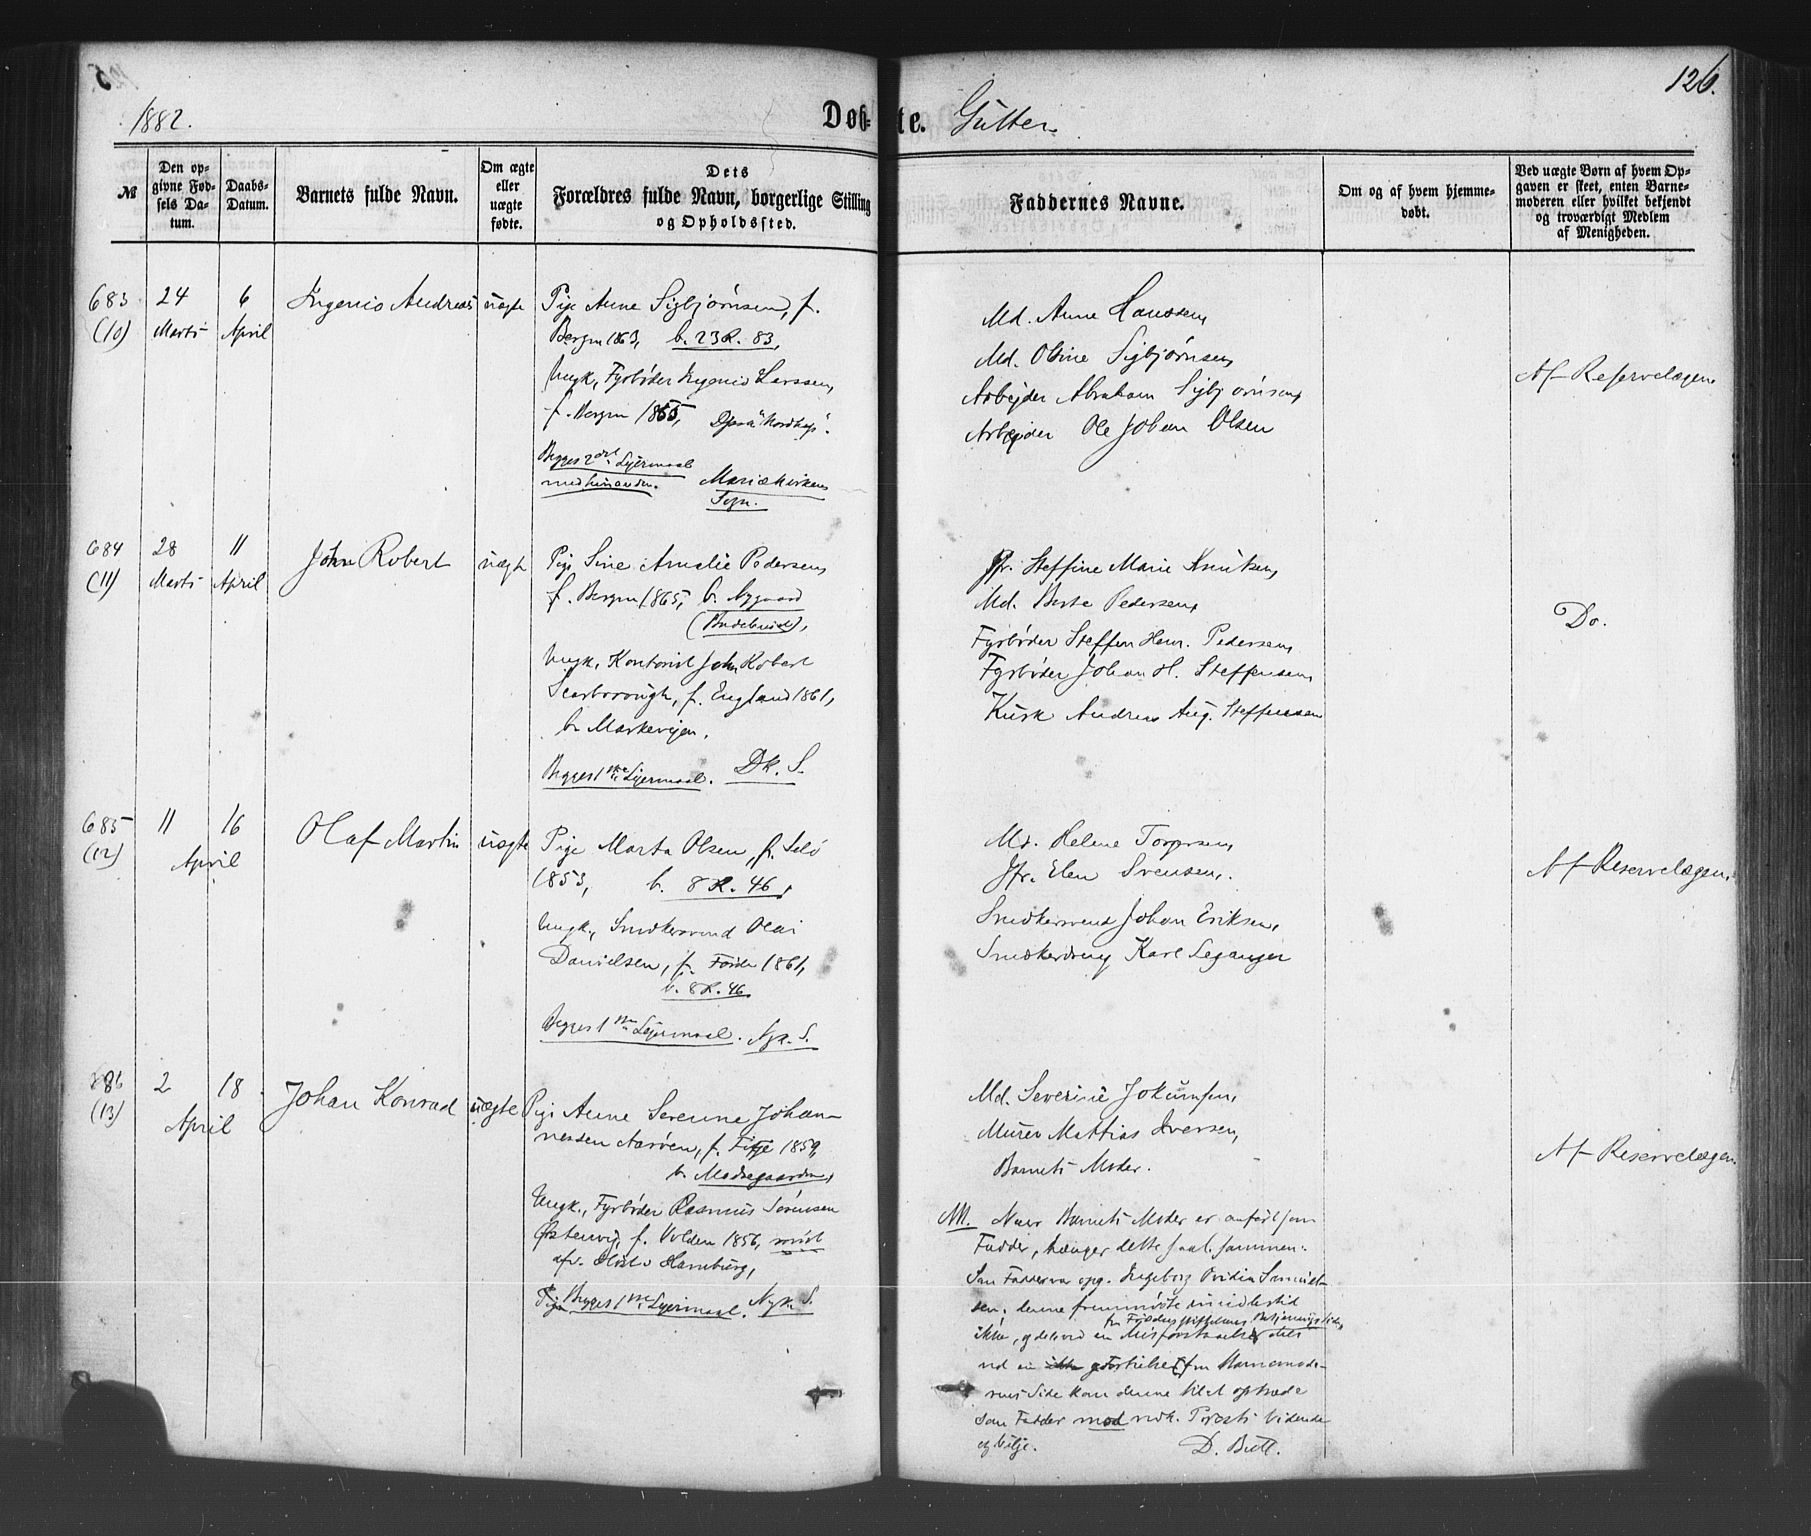 126.
1882.
Døb-te. Gutter
№
Den op-
givne Fød-
sels Da-
tum.
Daabs-
Datum.
Barnets fulde Navn.
Om ægte
eller
uægte
fødte.
Dets
Forældres fulde Navn, borgerlige Stilling
og Opholdssted.
Faddernes Navne.
Om og af hvem hjemme-
døbt.
Ved uægte Børn af hvem Op-
gaven er skeet, enten Barne-
moderen eller hvilket bekjendt
og troværdigt Medlem
af Menigheden.
683
(10)
24
Marts
6
April
Ingenio Andreas
uægte
Pige Anne Sigbjørnsen, f.
Bergen 1863, b. 23 R. 83,
Ungk, Fyrbøder Ingenio Larssen,
f. Bergen 1855, Dpsk "Nordkap".
Begges 2det Leiermaal
med hinanden. Mariækirkens
Sogn.
Md. Anne Hanssen,
Md. Oline Sigbjørnsen,
Arbejder Abraham Sigbjørnsen,
Arbejder Ole Johan Olsen
Af Reservelægen.
684
(11)
28
Marts
11
April
John Robert
uægte
Pige Sine Amalie Pedersen,
f. Bergen 1865, b. Nygaard
Ungk, Kontorist John Robert
Scarborough, f. England 1861,
b. Markevejen.
Begges 1ste Leiermaal. Dk. S.
Jfr. Steffine Marie Knutsen,
Md. Berte Pedersen,
Fyrbøder Steffen Henr. Pedersen,
Fyrbøder Johan H. Steffensen,
Kusk Andreas Aug. Steffensen
Do.
685
(12)
11
16
April
Olaf Martin
uægte
Pige Marta Olsen, f. Selø
1853, b. 8 R. 46,
Ungk., Snedkersvend Olai
Danielsen, f. Førde 1861,
b. 8 R. 46.
Begges 1ste Leiermaal. Nyk. S.
Md. Helene Torgersen,
Jfr. Elen Svensen,
Snedkersvend Johan Eriksen,
Snedkerdreng Karl Leganger
Af Reservelægen.
686
(13)
2
18
April
Johan Konrad
uægte
Pige Anne Serenne Johan-
nessen Aarøen, f. Fitje 1859,
b. Madsegaarden,
Ungk., Fyrbøder Rasmus Sørensen
Østenvig, f. Volden 1856,
Hamburg,
Begges 1ste Leiermaal. Nyk. S.
Md. Severine Jokumsen,
Murer Mattias Iversen,
Barnets Moder.
NB. Naar Barnets Moder er anført som
Fadder, hænger dette saal. sammen:
Som Fadder var opg. Ingeborg Ovidia Samuel-
sen; denne fremmødte imidlertid
ikke, og da ved en Misforstaaelse
ved en ikke for Barnemode-
rens Side kom denne til at optræde
som Fadder mod vedk. Præsts Vidende
og Vilje. D. Bull.
Af Reservelægen.